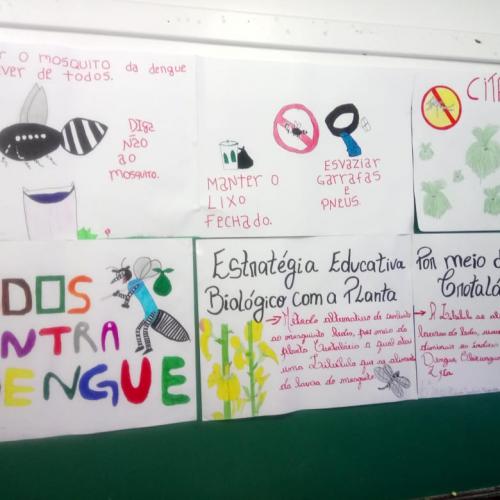 R O MOSQUITO da dengue
VER DE TODOS.
DIGA
NÃO
AO
MOSQUITO.
MANTER O
LIXO
FECHADO.
ESVAZIAR
GARRAFAS
E
PNEUS.
CITR
DOS
NTRA
ENGUE
Estratégia Educativa
Biológico com a Planta
Método alternativo de combate
ao mosquito
planta Crotalária a qual atrai
uma Libélula que se alimenta
da larva do mosquito
Por meio d
Crotalá
A Libélula se ali
larvas do
diminui os
Dengue
Zica